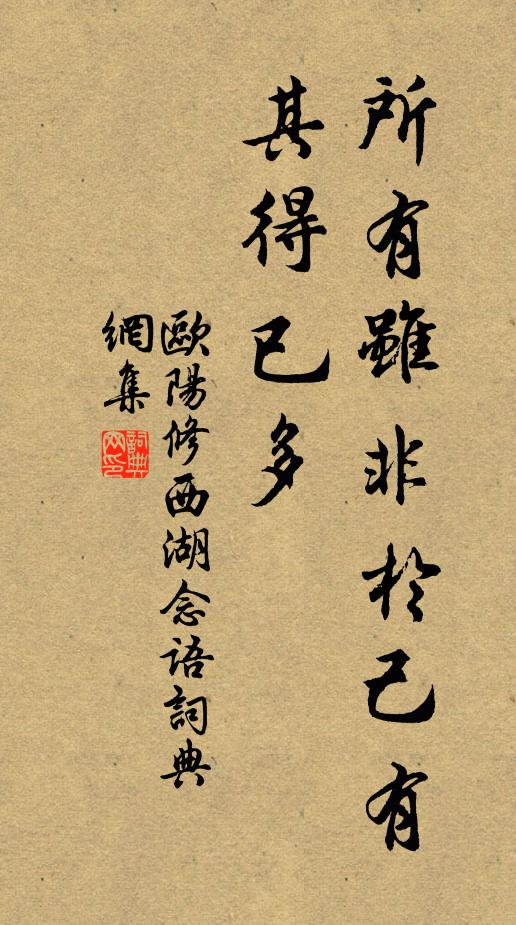 所有雖非於己有
其得已多
歐陽修西湖念語詞典
網集
詞典網印